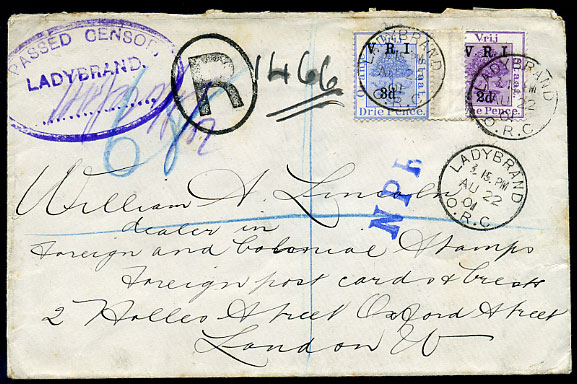 PASSED CENSOR,
LADYBRAND.
R
1466
V.R.I.
3d
Drie Pence.
Vrij
V.R.I.
2d
ne Pence.
LADYBRAND
O.R.C.
LADYBRAND
AU 22
O.R.C.
LADYBRAND
3.15 PM
AU 22
01
O.R.C.
NPB
William H. Lincoln
dealer in
Foreign and Colonial Stamps
Foreign post cards &
2 Holles Street Oxford Street
London W